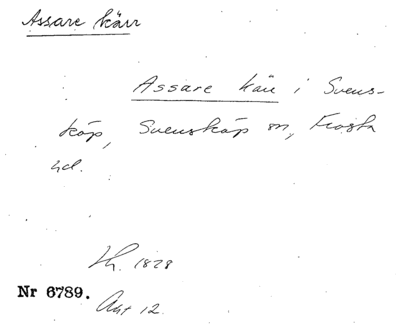 Assare kärr
Assare kärr i Svens-
köp, Svensköp sn, Frosta
hd.
Lh. 1828
Nr 6789.
Akt 12.